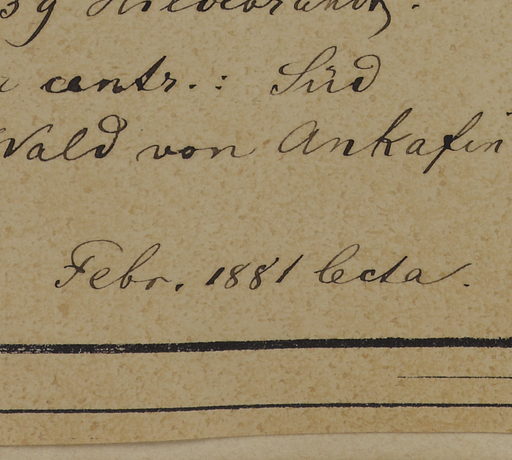 39 Hildebrandt.
centr.: Süd
Wald von Ankafin
Febr. 1881 lecta.